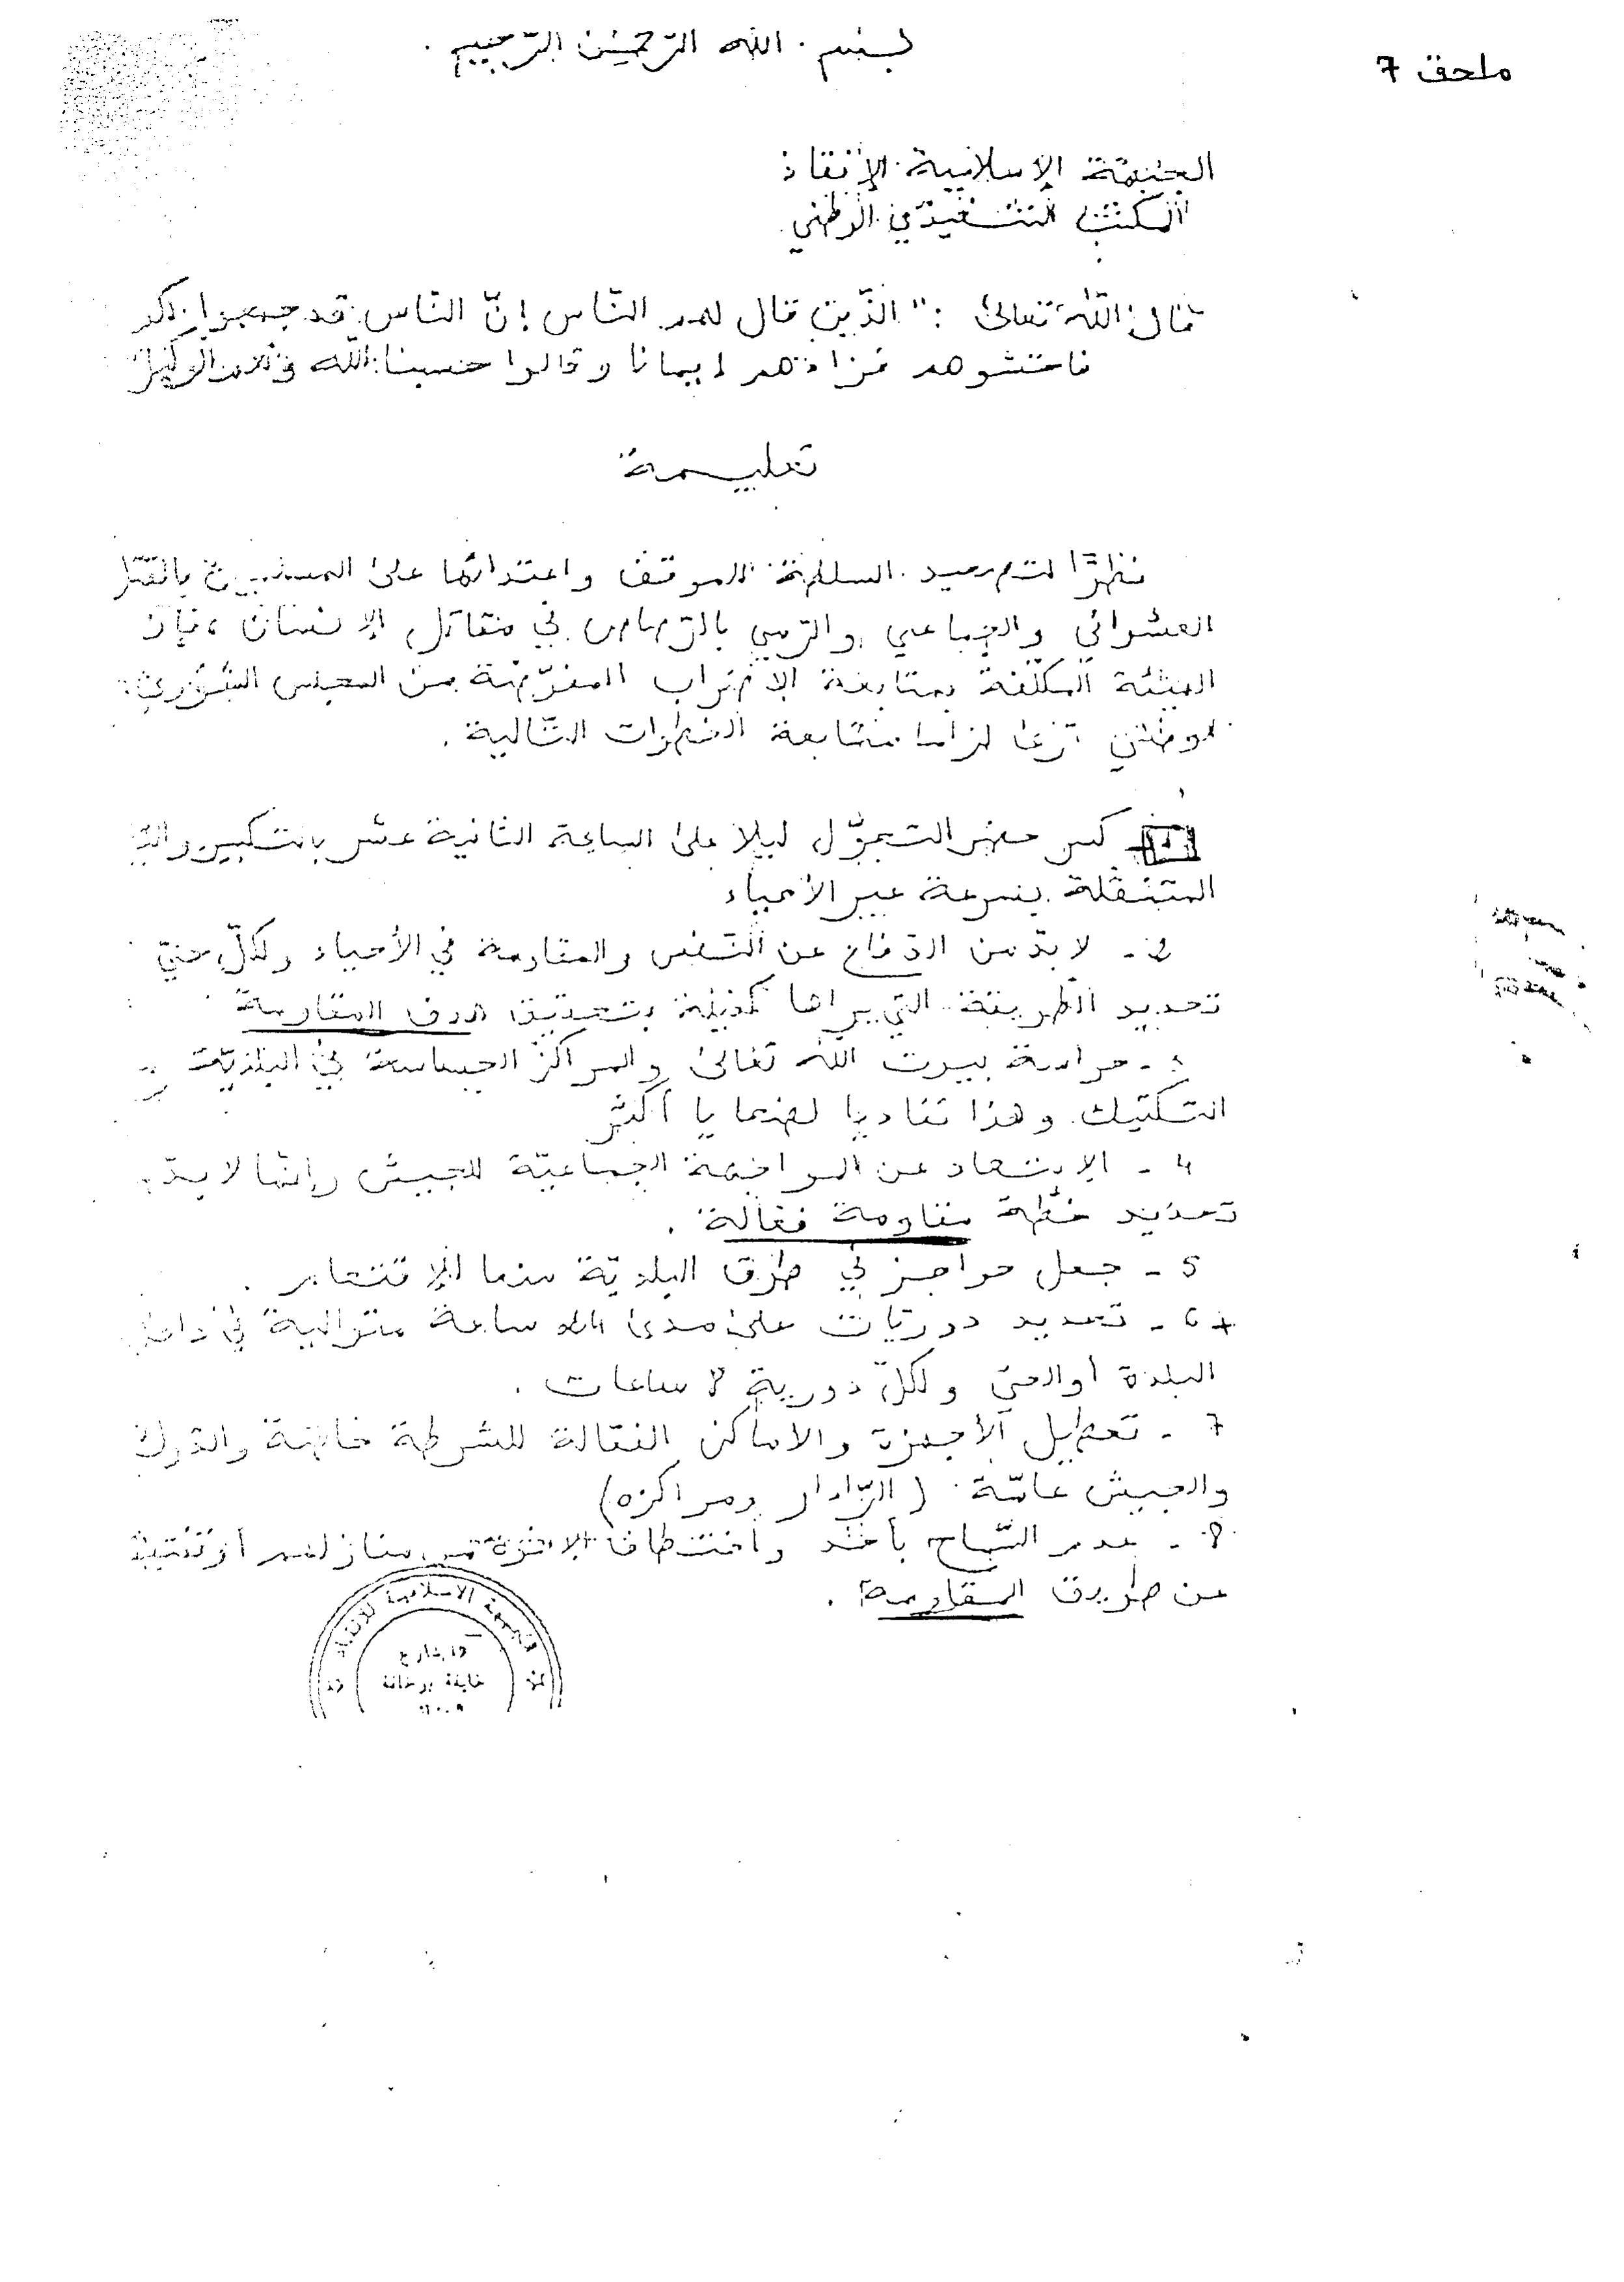 ملحق 7
بسم الله الرّحمن الرّحيم
الجبهة الإسلامية للإنقاذ
المكتب التنفيذي الوطني
قال اللّه تعالى : " الّذين قال لهم النّاس إنّ النّاس قد جمعوا لكم
فاخشوهم فزادهم إيمانا وقالوا حسبنا اللّه ونعم الوكيل
تعليمة
نظرًا لتصعيد السلطة للموقف واعتدائها على المدنيين بالقتل
العشوائي والجماعي والرّمي بالرّصاص في مقاتل الإنسان ، فإن
الهيئة المكلّفة بمتابعة الإضراب المفوّضة من المجلس الشّوري
الوطني ترى لزاما متابعة الخطوات التّالية .
كسر حضر التجوّل ليلا على الساعة الثانية عشر بالتكبير
المتنقّلة بسرعة عبر الأحياء
2 - لا بدّ من الدّفاع عن النّفس والمقاومة في الأحياء ولكلّ حيّ
تحديد الطريقة التي يراها كفيلة بتحقيق هدف المقاومة
- حراسة بيوت اللّه تعالى والمراكز الحساسة في البلديّة
التكتيك وهذا تفاديا لضحايا أكثر
4 - الإبتعاد عن المواجهة الجماعيّة للجيش وإنّما لا بدّ
تحديد خطّة مقاومة فعّالة .
5 - جعل حواجز في طرق البلديّة منعا للإقتحام .
+ 6 - تحديد دوريّات على مدى 24 ساعة متوالية في داخل
البلدة أو الحيّ ولكلّ دورية 8 ساعات .
7 - تعطيل الأجهزة والاماكن الفعّالة للشرطة خاصّة والدّرك
والجيش عامّة . ( الرّادار ومراكزه )
8 - عدم السّماح بأخذ واختطاف الإخوة من منازلهم أو تفتيش
عن طريق المقاومة .
الجبهة الإسلامية للإنقاذ
شارع
خليفة بوخالفة